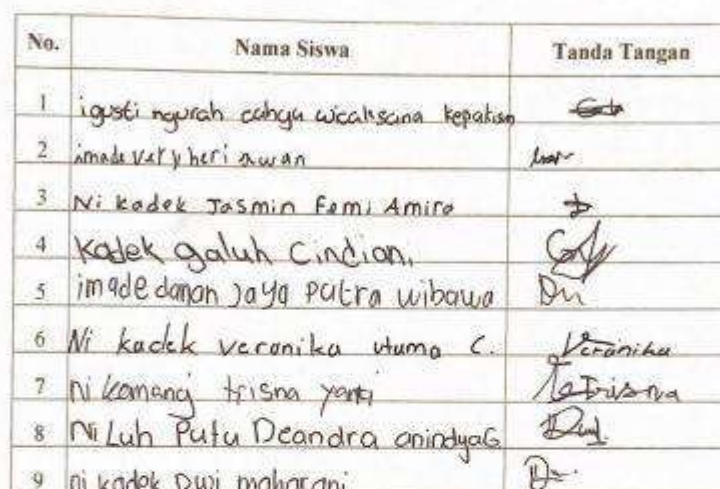 No. Nama Siswa Tanda Tangan
1 igusti ngurah cahya wicaksana kepakisan
2 imade very heri awan
3 Ni kadek Jasmin Femi Amira
4 Kadek galuh Cindiani
5 imade danan Jaya Putra wibawa Dn
6 Ni kadek veronika utama C. Veranika
7 ni komang trisna yanti Trisna
8 Ni Luh Putu Deandra anindya G
9 ni kadek Dwi maharani